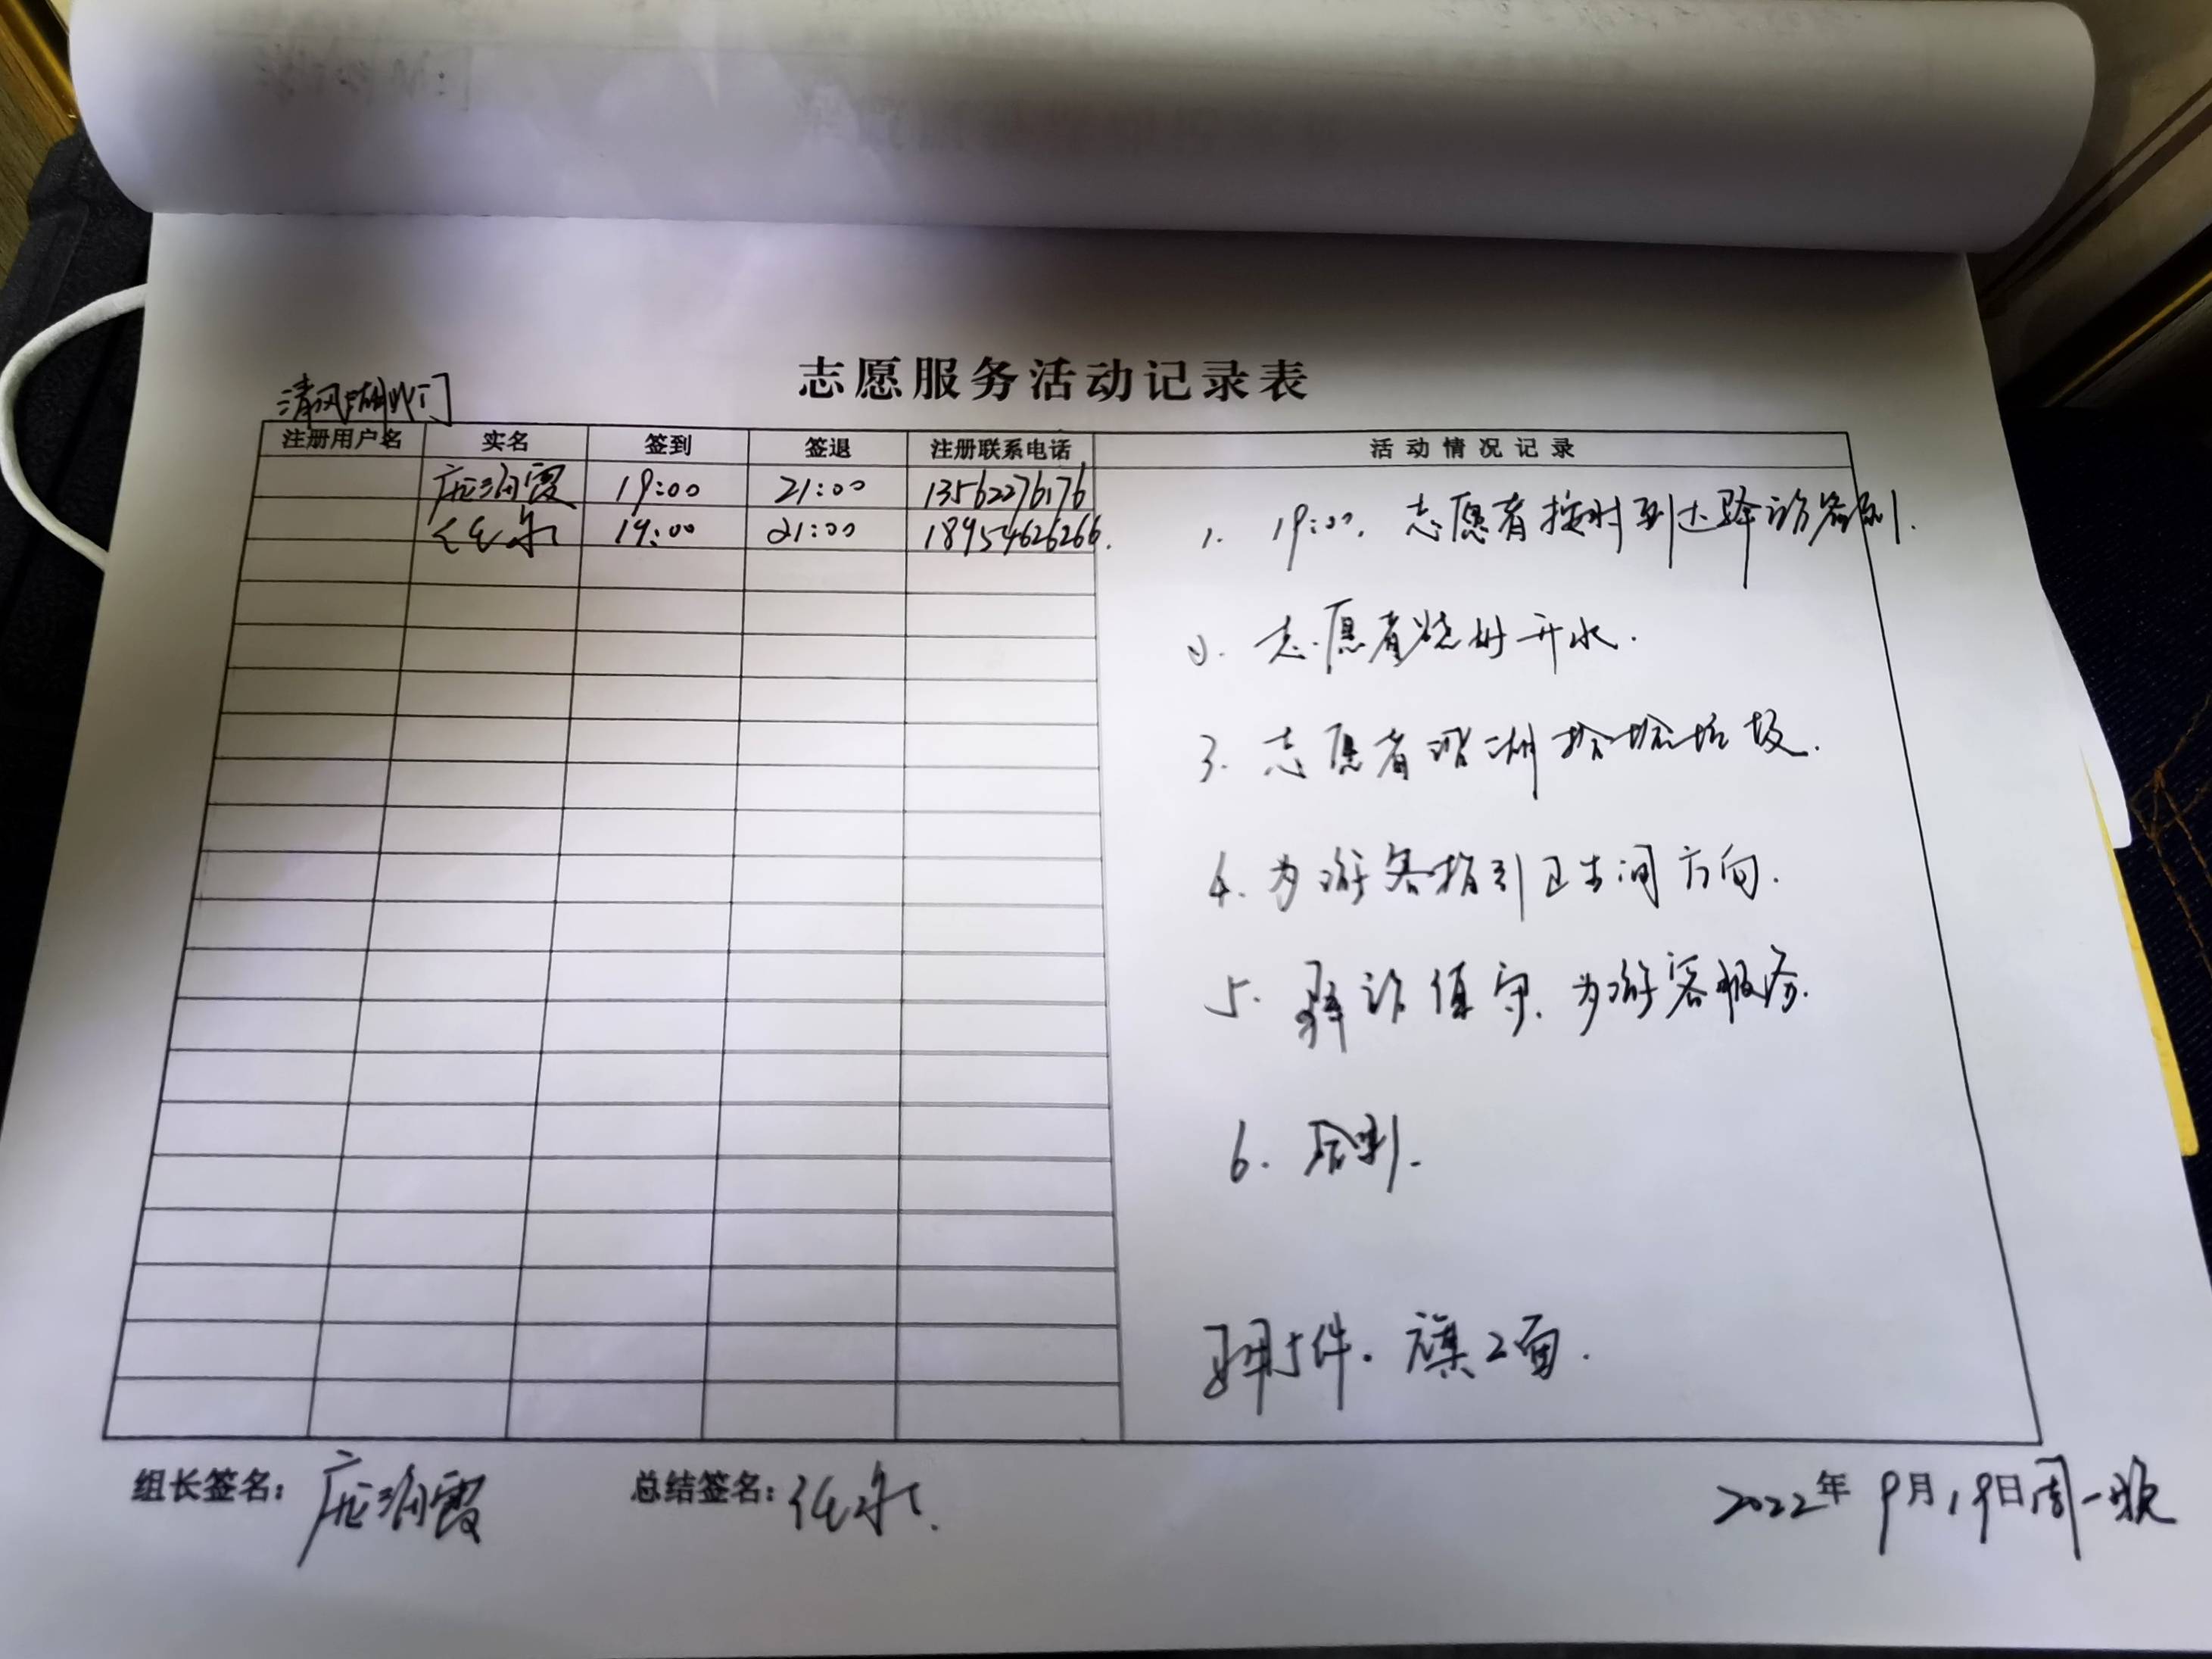 志愿服务活动记录表
清风湖北门
注册用户名 实名 签到 签退 注册联系电话 活动情况记录
庞润霞 19:00 21:00 13562276176
任永 19:00 21:00 18954626266.
1. 19:00. 志愿者按时到达驿站签到.
2. 志愿者烧好开水.
3. 志愿者沿湖捡拾垃圾.
4. 为游客指引卫生间方向.
5. 驿站值守. 为游客服务.
6. 签到.
5件. 旗2面.
组长签名: 庞润霞 总结签名: 任永.
2022年 9月19日周一晚